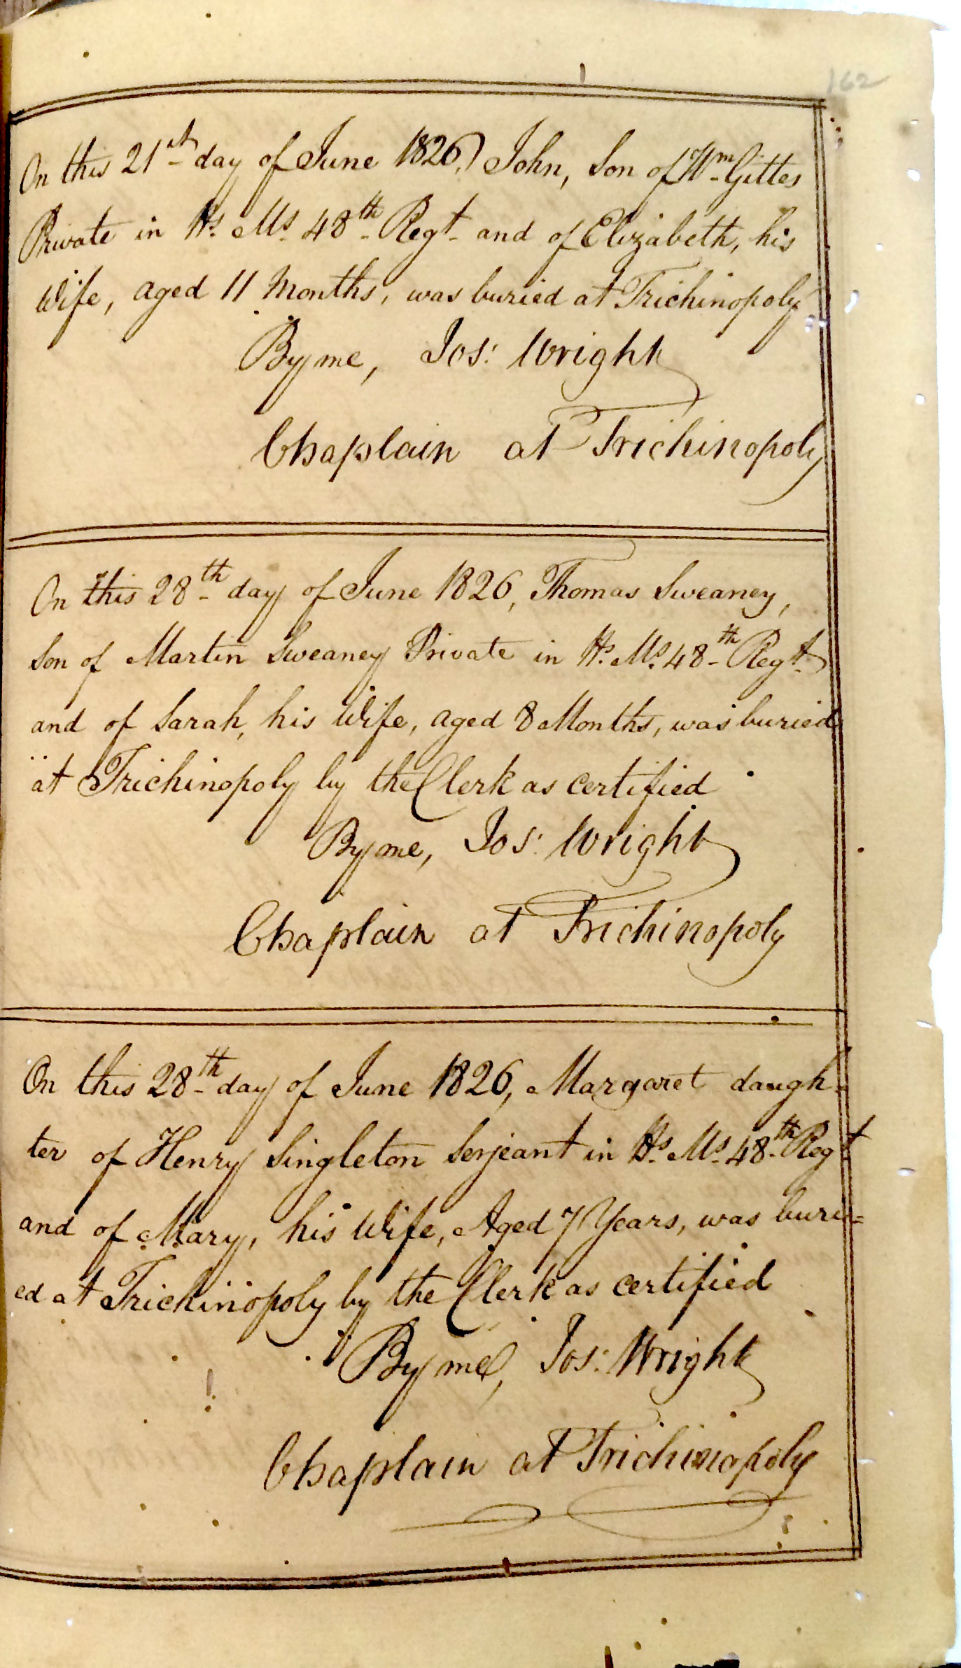 162
On this 21st day of June 1826, John, Son of Wm Gittes
Private in Hs. Ms. 48th Regt and of Elizabeth, his
Wife, aged 11 Months, was buried at Trichinopoly
By me, Jos: Wright
Chaplain at Trichinopoly
On this 28th day of June 1826, Thomas Sweaney,
Son of Martin Sweaney Private in Hs. Ms. 48th Regt.
and of Sarah, his Wife, aged 8 Months, was buried
at Trichinopoly by the Clerk as certified
By me, Jos: Wright
Chaplain at Trichinopoly
On this 28th day of June 1826, Margaret daugh=
ter of Henry Singleton Serjeant in Hs. Ms. 48th Regt
and of Mary, his Wife, Aged 7 Years, was buri=
ed at Trichinopoly by the Clerk as certified
By me, Jos: Wright
Chaplain at Trichinopoly